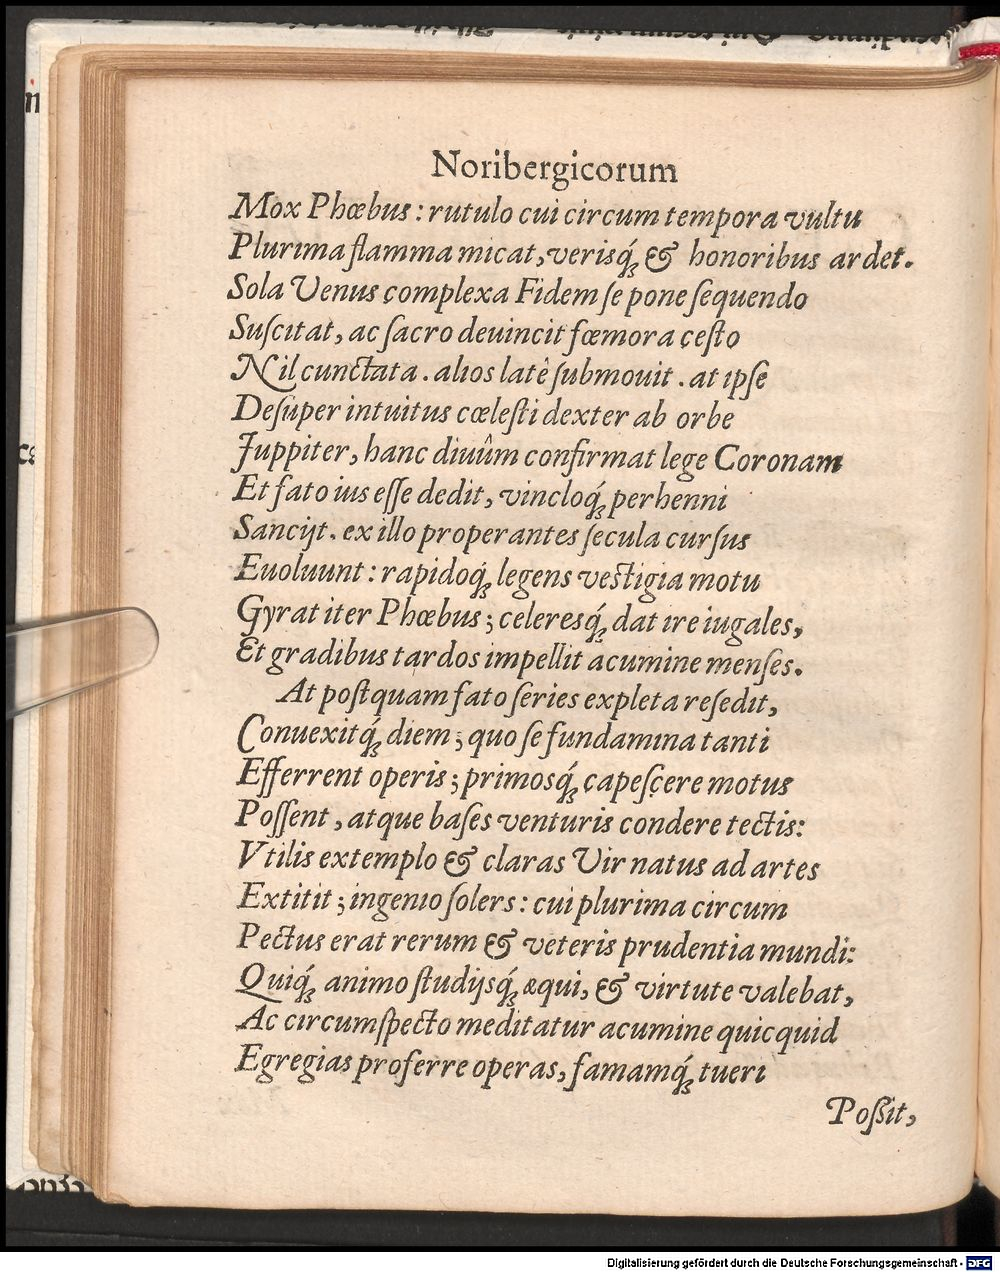 Noribergicorum
Mox Phœbus: rutulo cui circum tempora vultu
Plurima flamma micat, verisq́; & honoribus ardet.
Sola Venus complexa Fidem se pone sequendo
Suscitat, ac sacro deuincit fœmora çesto
Nil cunctata. alios latè submouit. at ipse
Desuper intuitus cœlesti dexter ab orbe
Juppiter, hanc diuûm confirmat lege Coronam
Et fato ius esse dedit, vincloq́; perhenni
Sancijt. ex illo properantes secula cursus
Euoluunt: rapidoq́; legens vestigia motu
Gyrat iter Phœbus; celeresq́; dat ire iugales,
Et gradibus tardos impellit acumine menses.
At postquam fato series expleta resedit,
Conuexitq́; diem; quo se fundamina tanti
Efferrent operis; primosq́; capesçere motus
Possent, atque bases venturis condere tectis:
Vtilis extemplo & claras Vir natus ad artes
Extitit; ingenio solers: cui plurima circum
Pectus erat rerum & veteris prudentia mundi:
Quiq́; animo studijsq́; æqui, & virtute valebat,
Ac circumspecto meditatur acumine quicquid
Egregias proferre operas, famamq́; tueri
Poßit,
Digitalisierung gefördert durch die Deutsche Forschungsgemeinschaft - DFG